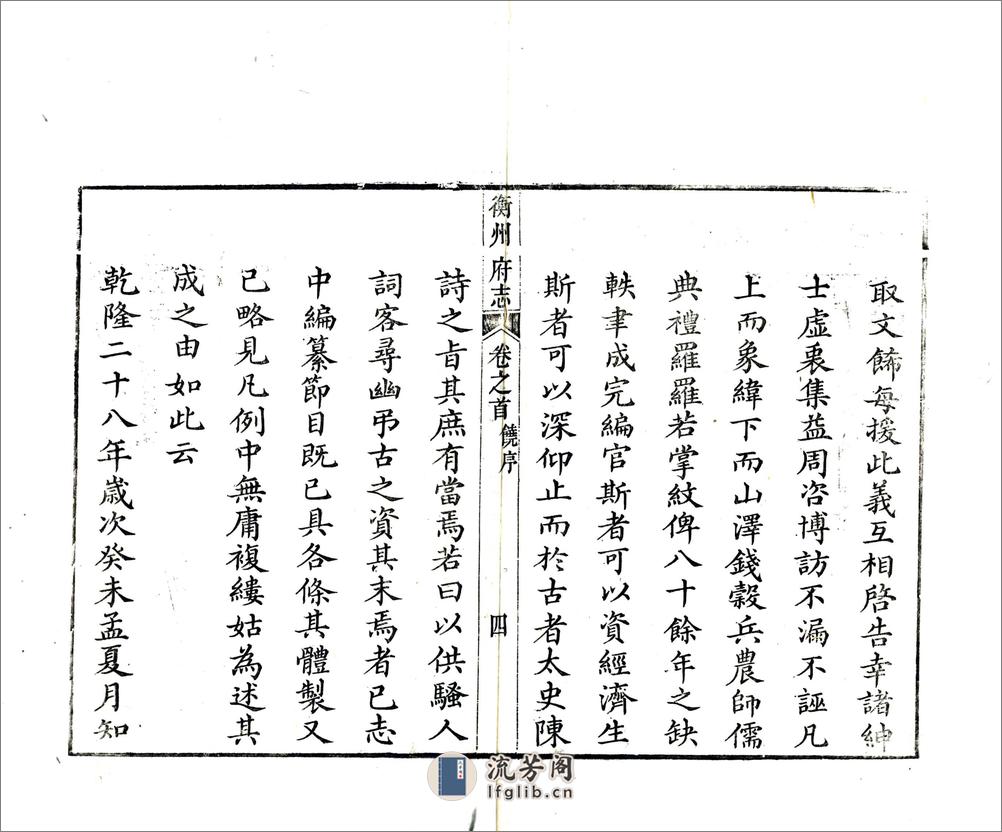 取文餙每援此義互相啓告幸諸紳
士虛衷集益周咨博訪不漏不誣凡
上而象緯下而山澤錢穀兵農師儒
典禮羅羅若掌紋俾八十餘年之缺
軼聿成完編官斯者可以資經濟生
斯者可以深仰止而於古者太史陳
衡州府志
卷之首
饒序
四
詩之旨其庶有當焉若曰以供騷人
詞客尋幽弔古之資其末焉者已志
中編纂節目既已具各條其體製又
已略見凡例中無庸複縷姑為述其
成之由如此云
乾隆二十八年歲次癸未孟夏月知
流芳阁
lfglib.cn